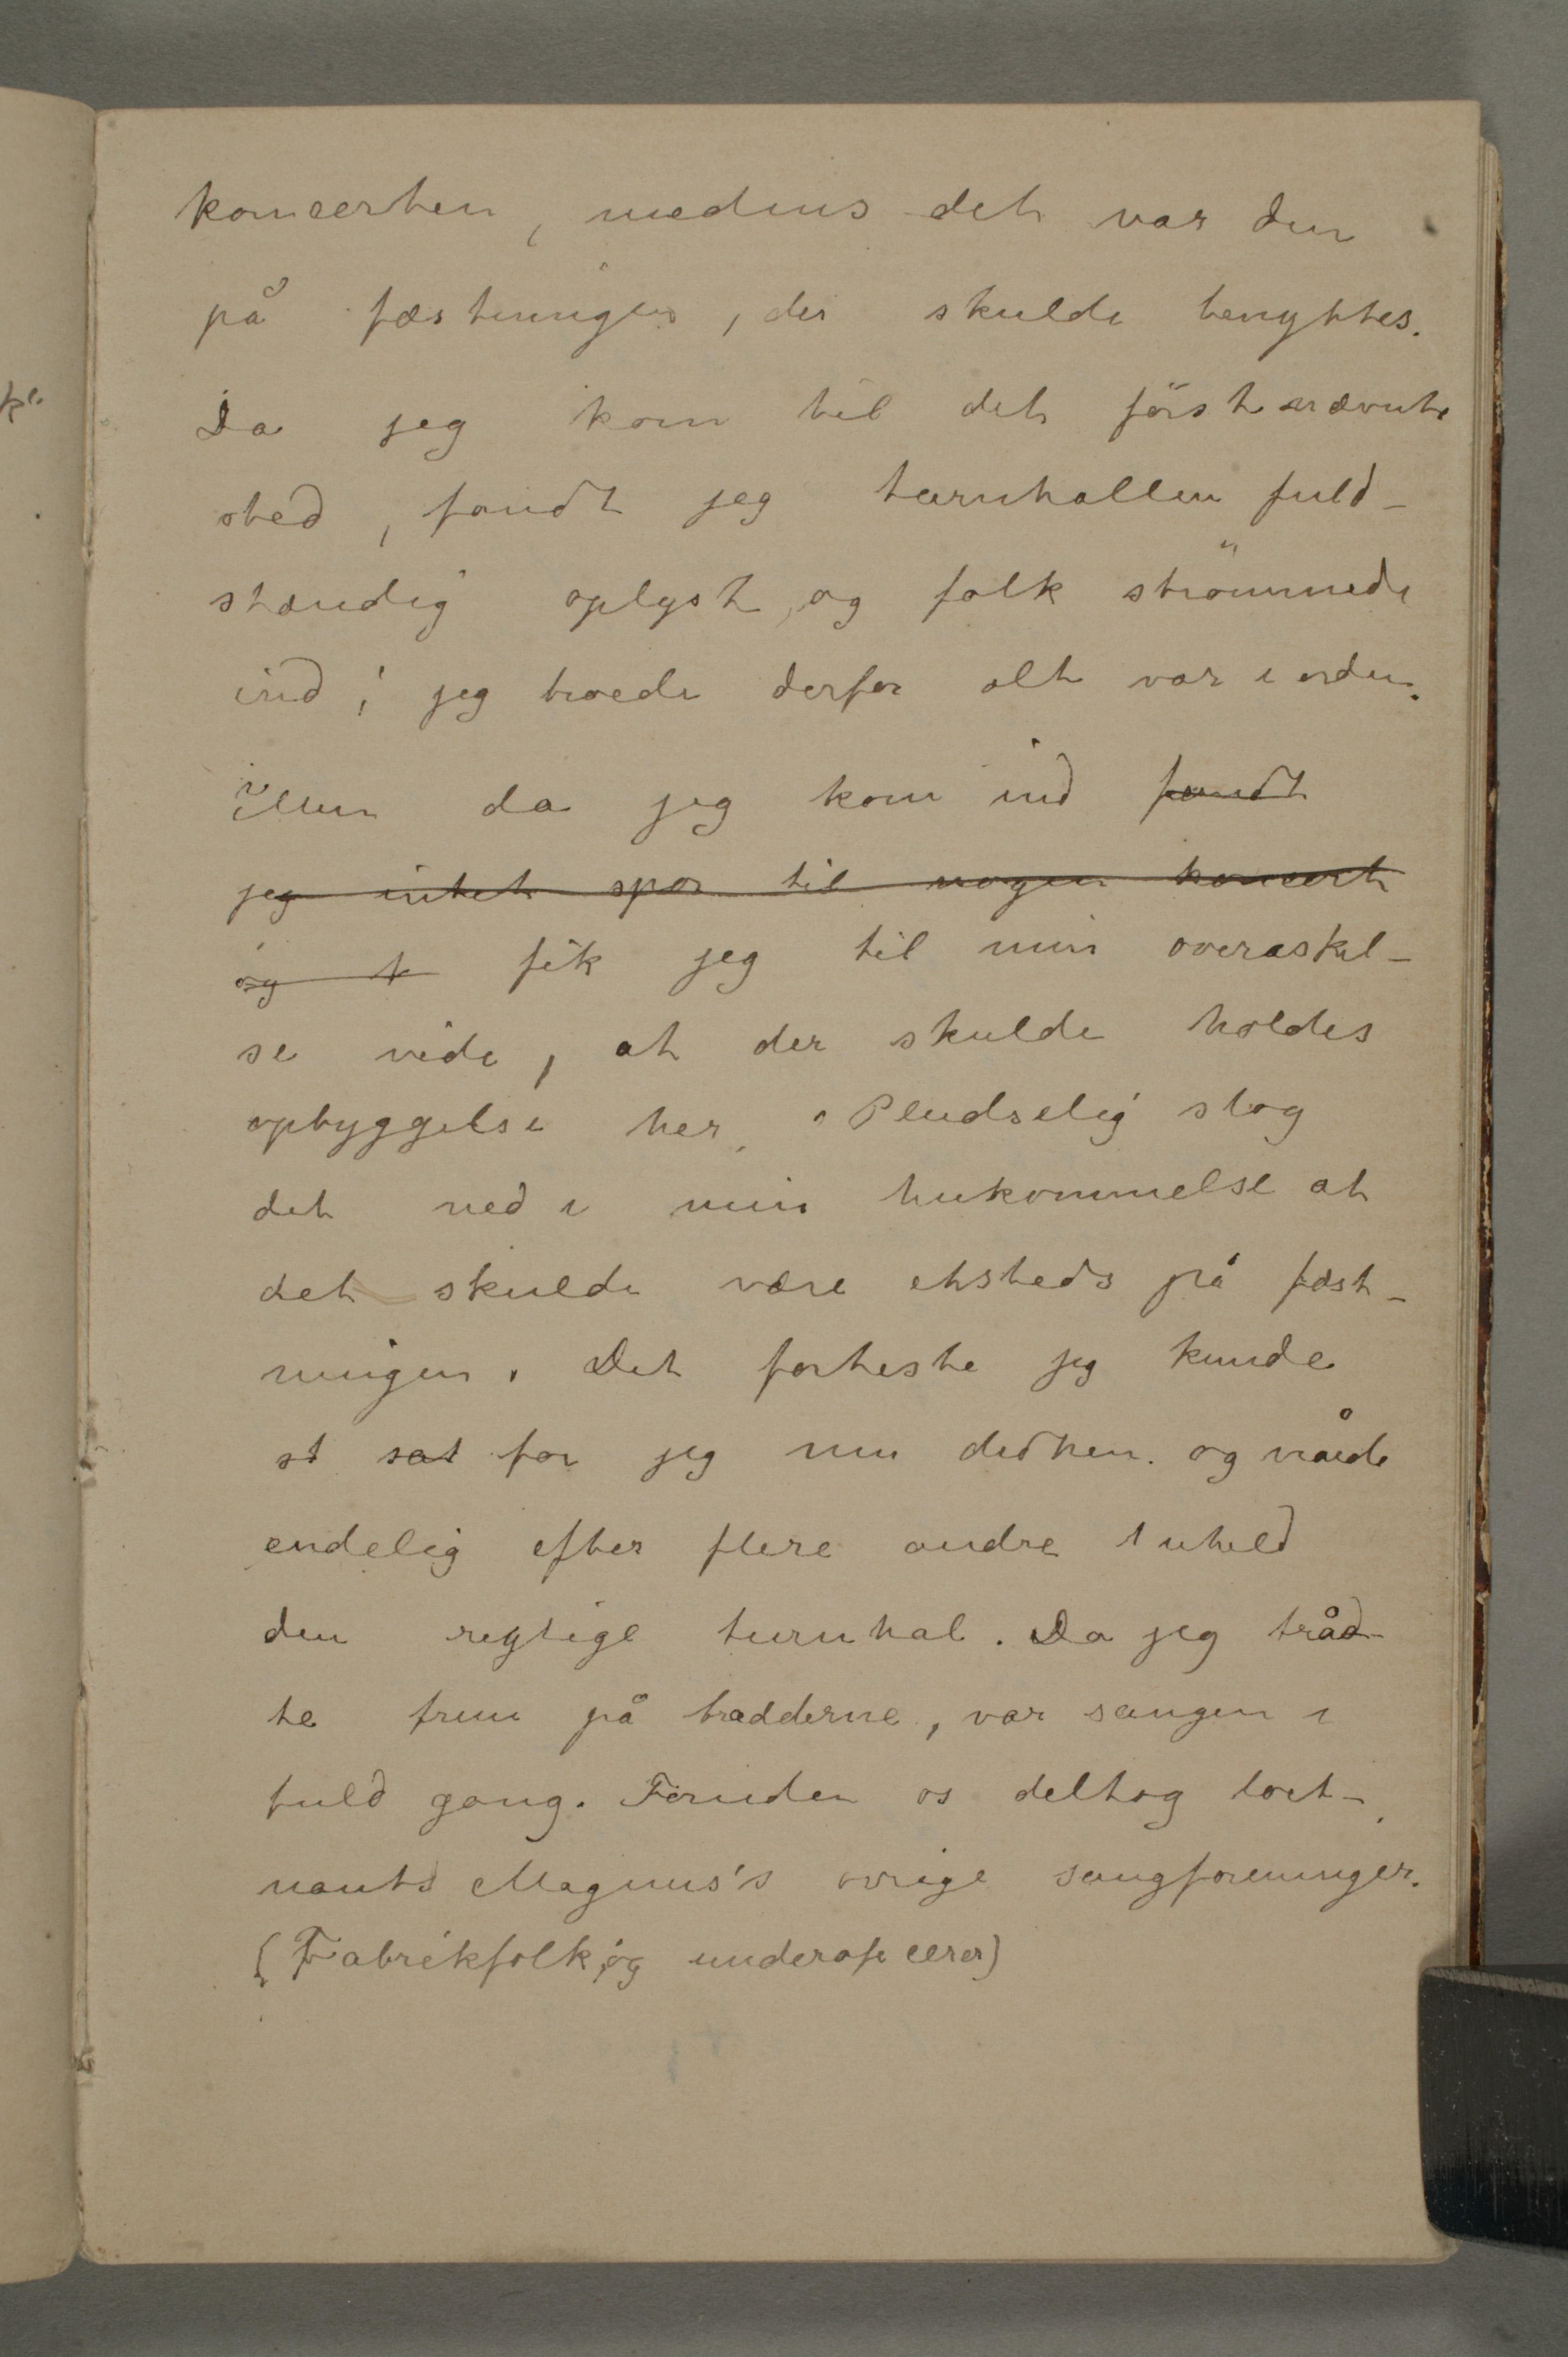 koncerten, medens det var den
på fæstningen, der skulde benyttes.
Da jeg kom til det förstnævnte
sted, fandt jeg turnhallen fuld-
stændig oplyst, og folk strömmede
ind; jeg troede derfor alt var i orden.
Men da jeg kom ind fandt
jeg intet spor til nogen koncert
og t fik jeg til min overaskel-
se vide, at der skulde holdes
opbyggelse her. Pludselig slog
det ned i min hukommelse at
det skulde være etsteds på fæst-
ningen. Det forteste jeg kunde
st sat for jeg nu didhen. og nåede
endelig efter flere andre uheld
den regtige turnhal. Da jeg tråd-
te frem på brædderne, var sangen i
fuld gang. Foruden os deltog loit-
nants Magnus's ovrige sangforeninger.
(Fabrikfolk og underoficerer)